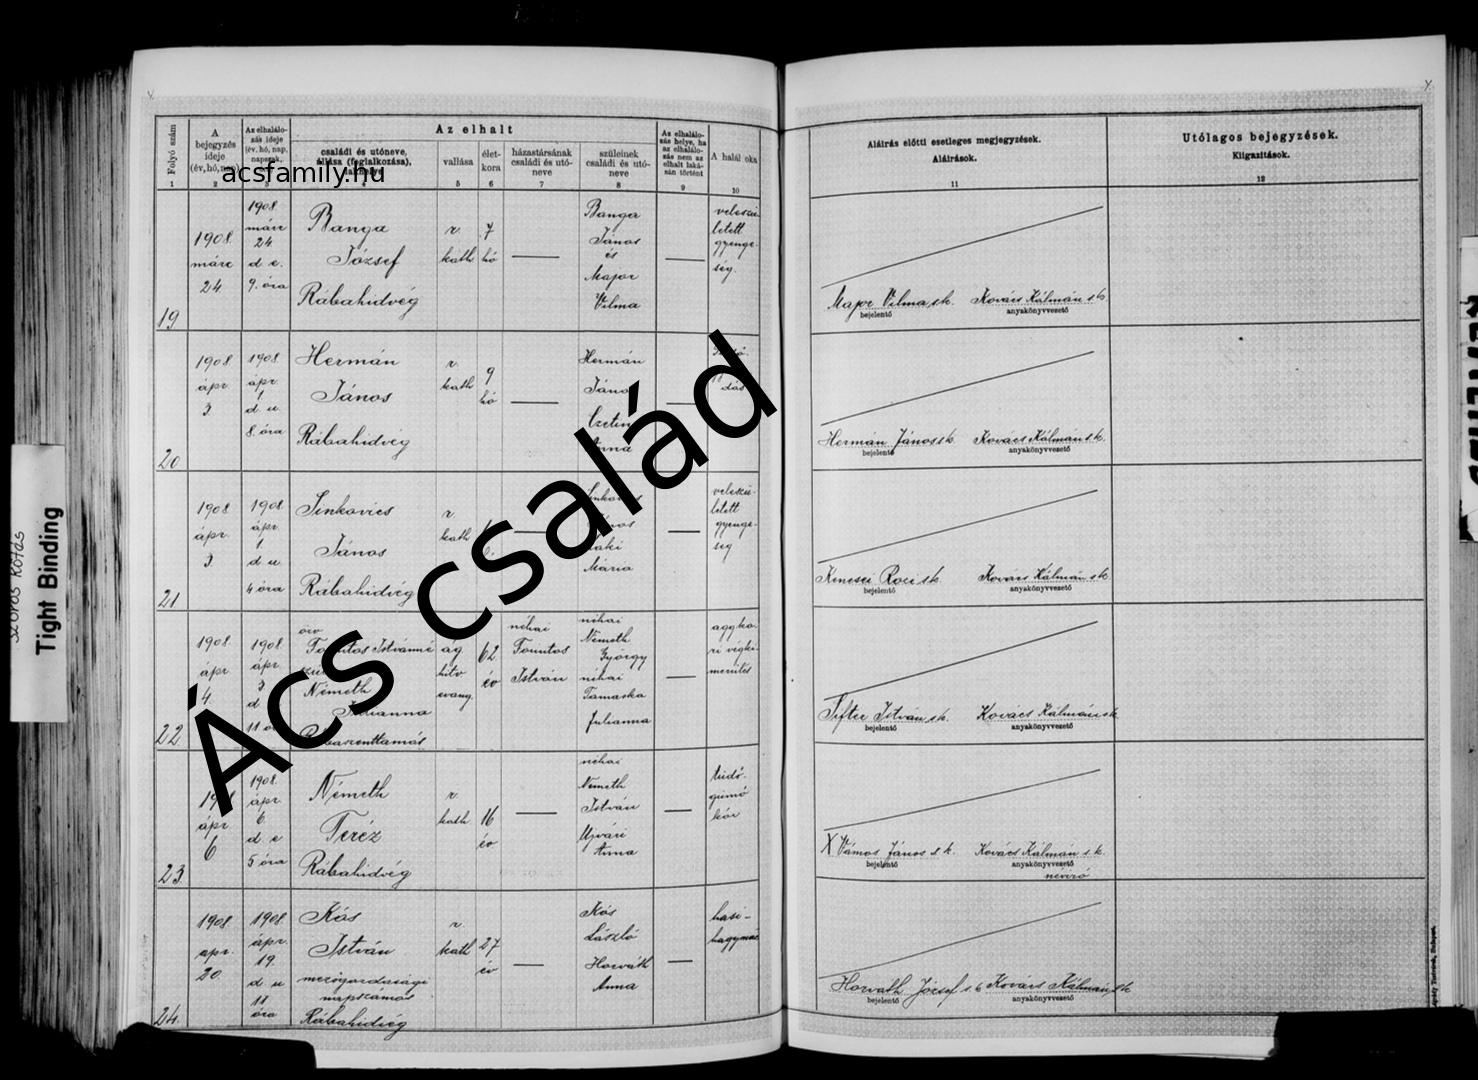 Folyó szám
1
A
bejegyzés
ideje
(év, hó, nap)
2
Az elhalálo-
zás ideje
(év, hó, nap,
napszak,
3
Az elhalt
családi és utóneve,
állása (foglalkozása),
lakhelye
vallása
5
élet-
kora
6
házastársának
családi és utó-
neve
7
szüleinek
családi és utó-
neve
8
Az elhalálo-
zás helye, ha
az elhalálo-
zás nem az
elhalt laká-
sán történt
9
A halál oka
10
Aláírás előtti esetleges megjegyzések.
Aláírások.
11
Utólagos bejegyzések.
Kiigazítások.
12
acsfamily.hu
Ács család
19
1908
márc
24
1908
márc
24
d e.
9. óra
Banga
József
Rábahidvég
r.
kath
7
hó
Banga
János
és
Major
Vilma
veleszü-
letett
gyenge-
ség.
Major Vilma sk. Kovács Kálmán sk
bejelentő anyakönyvvezető
20
1908
ápr
3
1908
ápr
1
d u
8. óra
Hermán
János
Rábahidvég
r.
kath
9
hó
Hermán
János
Czetin
Anna
Hermán János sk. Kovács Kálmán sk.
bejelentő anyakönyvvezető
21
1908
ápr
3
1908
ápr
1
d u
4 óra
Sinkovics
János
Rábahidvég
r.
kath
Mária
veleszü-
letett
gyenge-
ség
Kenesei Rozi sk. Kovács Kálmán sk
bejelentő anyakönyvvezető
22
1908
ápr
4
1908
ápr
3
d
özv
Németh
Julianna
Rábaszenttamás
ág
hitv
evang.
62
év
néhai
István
néhai
Németh
György
néhai
Tamaska
Julianna
agyko-
ri végki-
merülés
Sifter István sk. Kovács Kálmán sk
bejelentő anyakönyvvezető
23
1908
ápr
6
1908
ápr
6
d e
5 óra
Németh
Teréz
Rábahidvég
r.
kath
16
év
néhai
Németh
István
Ujvári
Anna
tüdő-
gümő
kór
X Vámos János s k. Kovács Kálmán s k.
bejelentő anyakönyvvezető
névíró
24.
1908
apr.
20
1908
ápr.
19.
d u
11
óra
Kós
István
mezőgazdasági
napszámos
Rábahidvég
r.
kath
27
év
Kós
László
Horváth
Anna
hasi-
hagymáz
Horvath József s. k Kovács Kálmán sk
bejelentő anyakönyvvezető
Tight Binding
szoros kötés